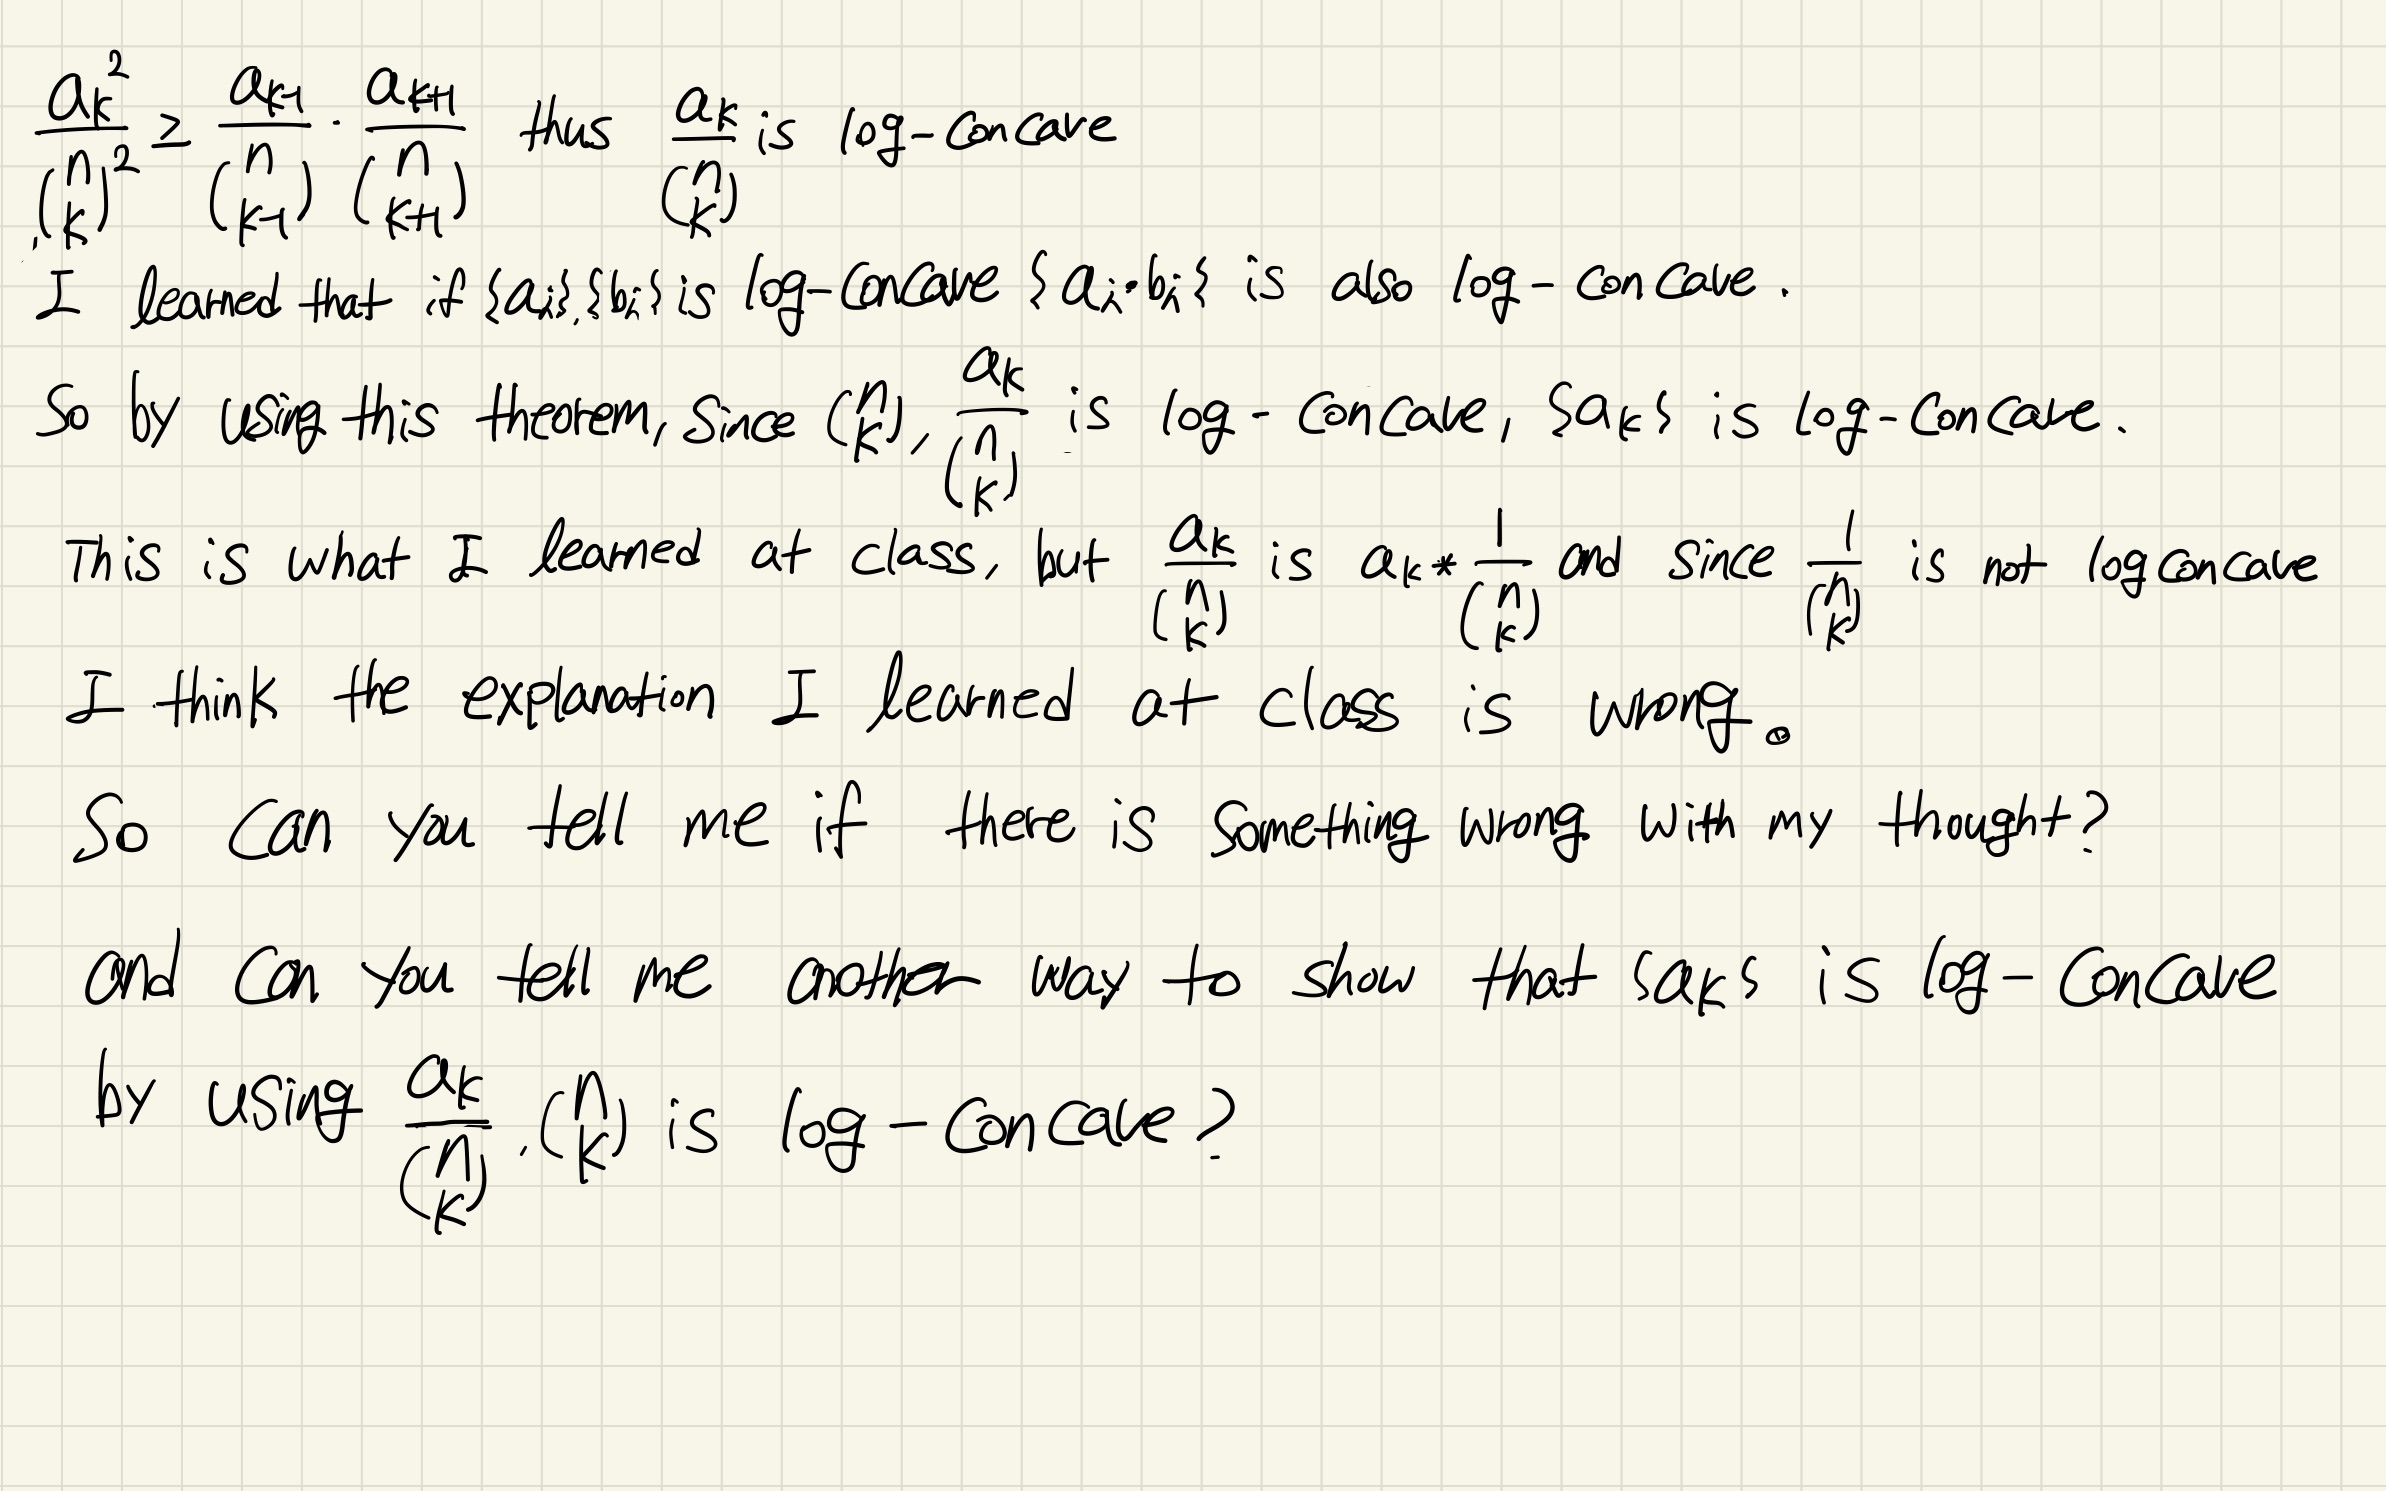 a_k^2 / (n k)^2 ≥ a_{k-1} / (n k-1) · a_{k+1} / (n k+1) thus a_k / (n k) is log-concave
I learned that if {a_i}, {b_i} is log-concave {a_i·b_i} is also log-concave.
So by using this theorem, since (n k), a_k / (n k) is log-concave, {a_k} is log-concave.
This is what I learned at class, but a_k / (n k) is a_k * 1 / (n k) and since 1 / (n k) is not logconcave
I think the explanation I learned at class is wrong.
So can you tell me if there is something wrong with my thought?
and can you tell me another way to show that {a_k} is log-concave
by using a_k / (n k), (n k) is log-concave?